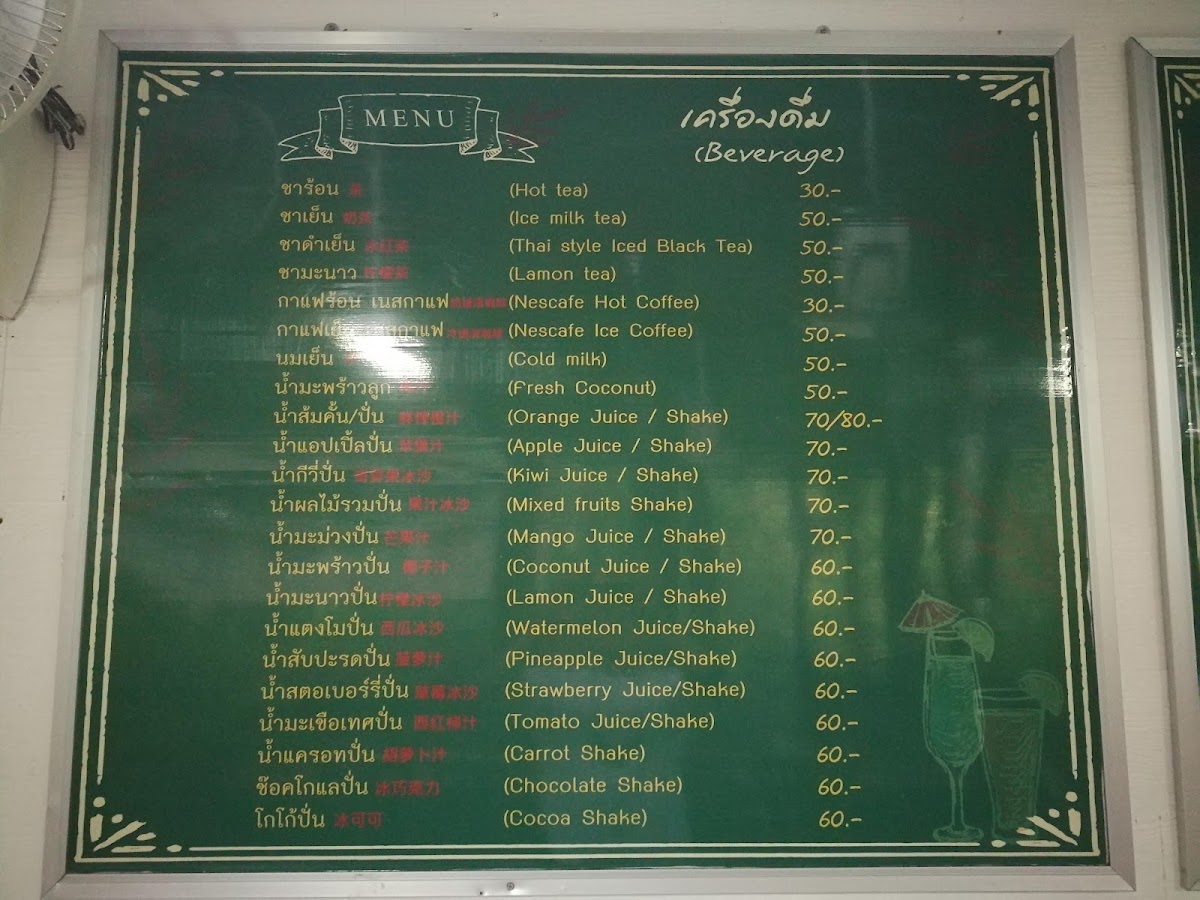 MENU
เครื่องดื่ม
(Beverage)
ชาร้อน 茶 (Hot tea) 30.-
ชาเย็น 奶茶 (Ice milk tea) 50.-
ชาดำเย็น 冰红茶 (Thai style Iced Black Tea) 50.-
ชามะนาว 柠檬茶 (Lamon tea) 50.-
กาแฟร้อน เนสกาแฟ (Nescafe Hot Coffee) 30.-
กาแฟเย็น เนสกาแฟ (Nescafe Ice Coffee) 50.-
นมเย็น (Cold milk) 50.-
น้ำมะพร้าวลูก (Fresh Coconut) 50.-
น้ำส้มคั้น/ปั่น (Orange Juice / Shake) 70/80.-
น้ำแอปเปิ้ลปั่น 苹果汁 (Apple Juice / Shake) 70.-
น้ำกีวี่ปั่น (Kiwi Juice / Shake) 70.-
น้ำผลไม้รวมปั่น 果汁冰沙 (Mixed fruits Shake) 70.-
น้ำมะม่วงปั่น 芒果汁 (Mango Juice / Shake) 70.-
น้ำมะพร้าวปั่น 椰子汁 (Coconut Juice / Shake) 60.-
น้ำมะนาวปั่น 柠檬冰沙 (Lamon Juice / Shake) 60.-
น้ำแตงโมปั่น 西瓜冰沙 (Watermelon Juice/Shake) 60.-
น้ำสับปะรดปั่น 菠萝汁 (Pineapple Juice/Shake) 60.-
น้ำสตอเบอร์รี่ปั่น 草莓冰沙 (Strawberry Juice/Shake) 60.-
น้ำมะเขือเทศปั่น 西红柿汁 (Tomato Juice/Shake) 60.-
น้ำแครอทปั่น 胡萝卜汁 (Carrot Shake) 60.-
ช๊อคโกแลปั่น 冰巧克力 (Chocolate Shake) 60.-
โกโก้ปั่น 冰可可 (Cocoa Shake) 60.-